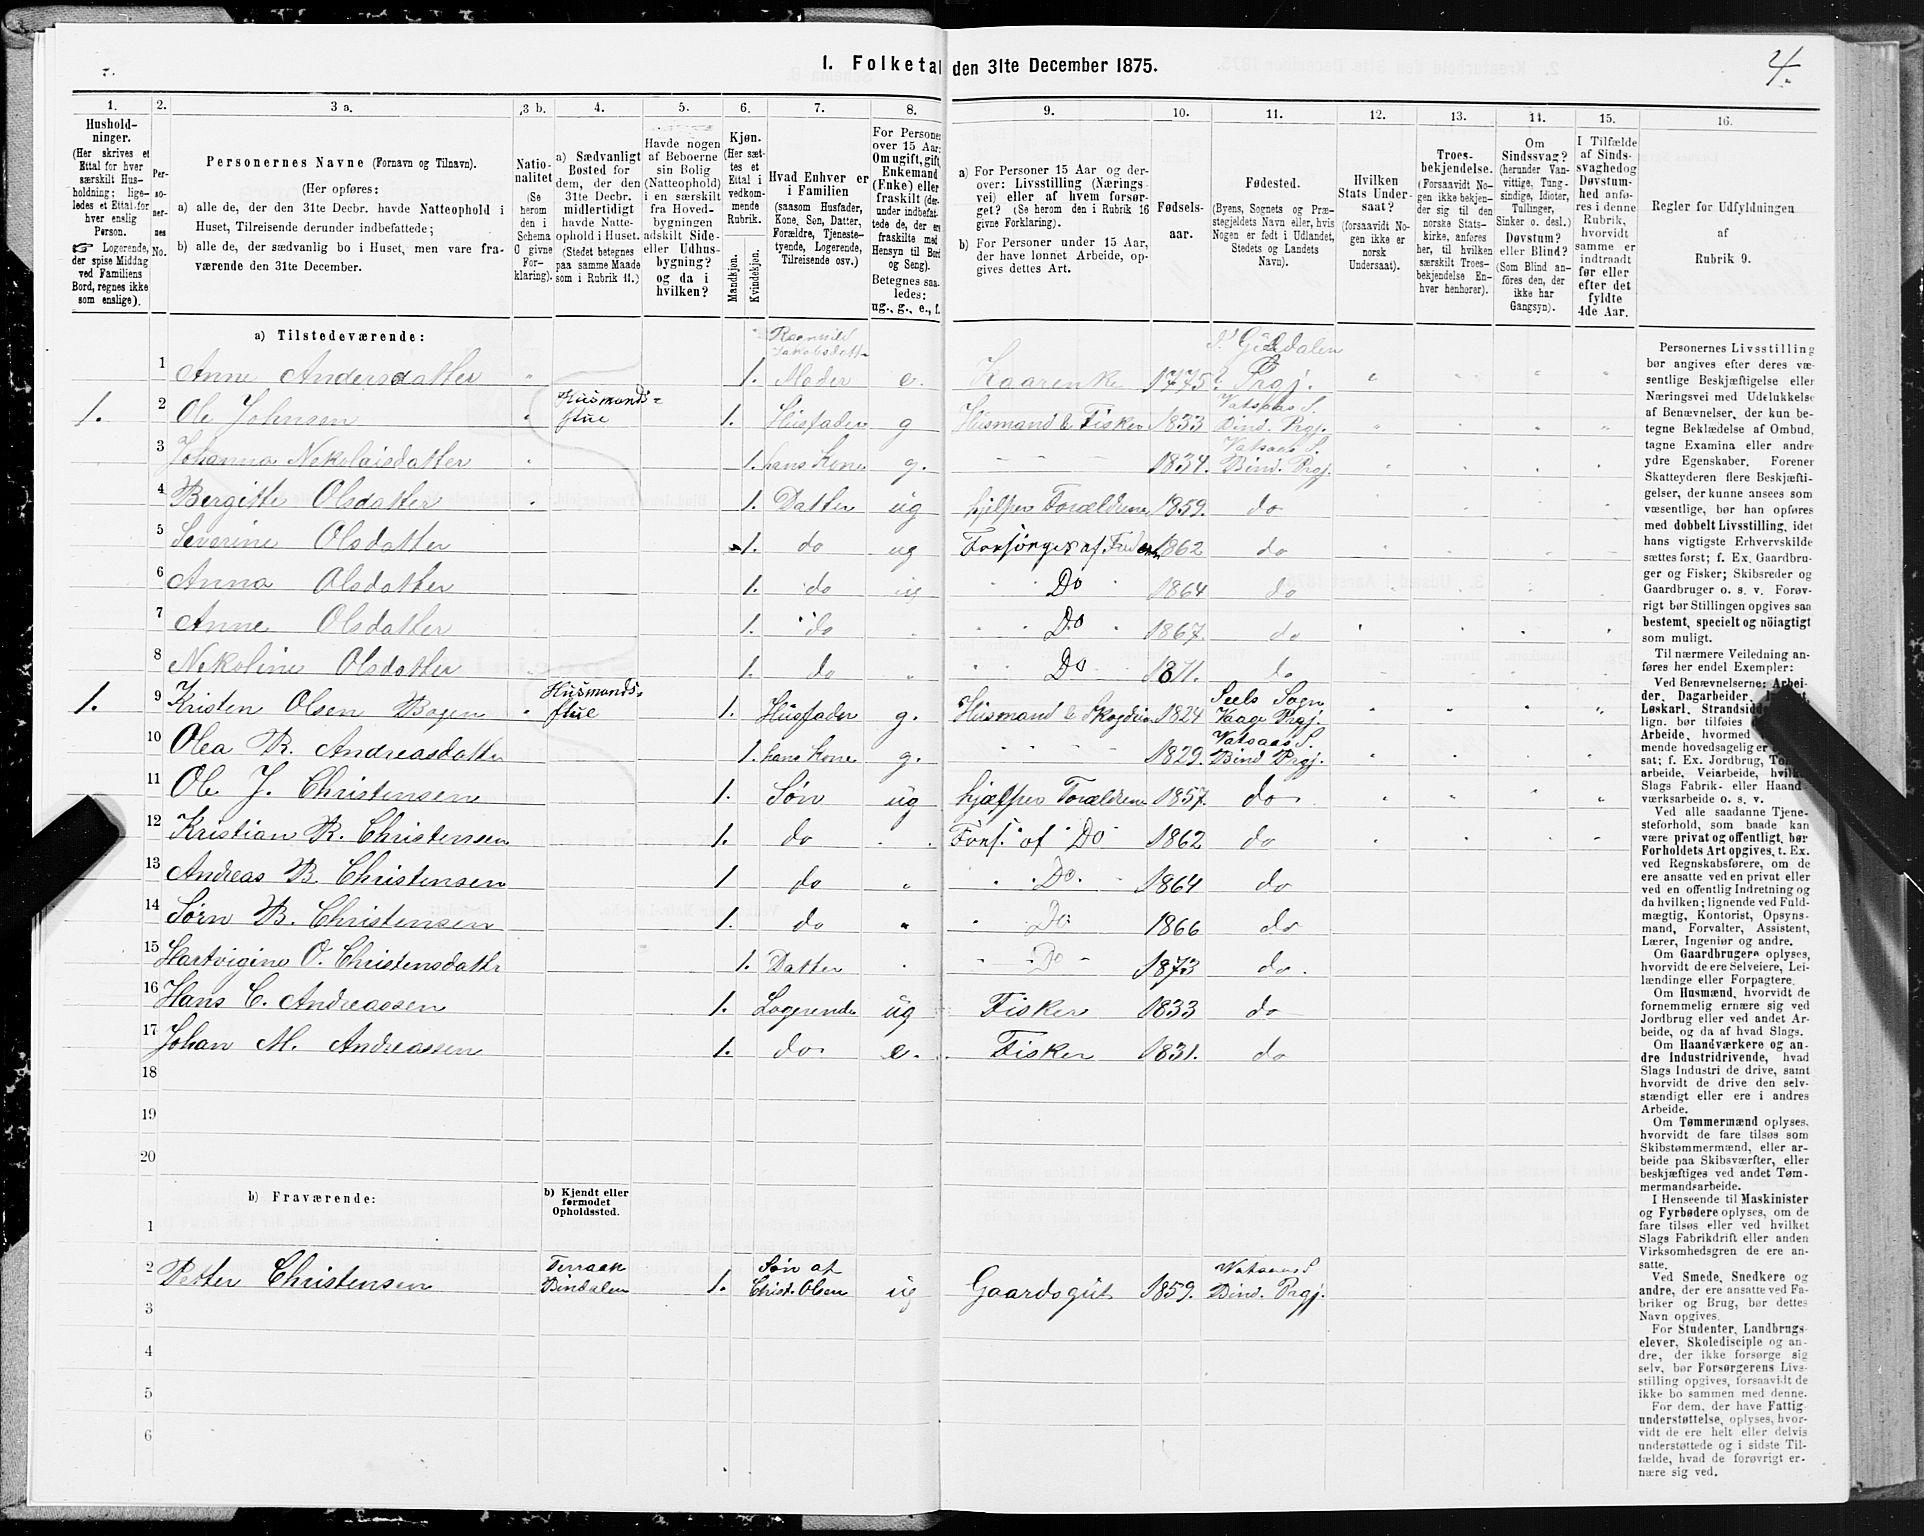 4.
1. Folketal den 31te December 1875.
1. 2. 3 a. 3 b. 4. 5. 6. 7. 8. 9. 10. 11. 12. 13. 14. 15. 16.
Hushold-
ninger.
(Her skrives et
Ettal for hver
særskilt Hus-
holdning; lige-
ledes et Ettal for
hver enslig
Person.
☞ Logerende,
der spise Middag
ved Familiens
Bord, regnes ikke
som enslige).
Per-
so-
ner-
nes
No.
Personernes Navne (Fornavn og Tilnavn).
(Her opføres:
a) alle de, der den 31te Decbr. havde Natteophold i
Huset, Tilreisende derunder indbefattede;
b) alle de, der sædvanlig bo i Huset, men vare fra-
værende den 31te December.
Natio-
nalitet
(Se
herom
den i
Schema
C givne
For-
klaring).
a) Sædvanligt
Bosted for
dem, der den
31te Decbr.
midlertidigt
havde Natte-
ophold i Huset.
(Stedet betegnes
paa samme Maade
som i Rubrik 11.)
Havde nogen
af Beboerne
sin Bolig
(Natteophold)
i en særskilt
fra Hoved-
bygningen
adskilt Side-
eller Udhus-
bygning?
og da i
hvilken?
Kjøn.
(Her sæt-
tes et
Ettal i
vedkom-
mende
Rubrik.
Mandkjøn.
Kvindekjøn.
Hvad Enhver er
i Familien
(saasom Husfader,
Kone, Søn, Datter,
Forældre, Tjeneste-
tyende, Logerende,
Tilreisende osv.)
For Personer
over 15 Aar:
Om ugift, gift,
Enkemand
(Enke) eller
fraskilt (der-
under indbefat-
tede de, der ere
fraskilte med
Hensyn til Bord
og Seng).
Betegnes saa-
ledes:
ug., g., e., f.
a) For Personer 15 Aar og der-
over: Livsstilling (Nærings-
vei) eller af hvem forsør-
get? (Se herom den i Rubrik 16
givne Forklaring).
b) For Personer under 15 Aar,
der have lønnet Arbeide, op-
gives dettes Art.
Fødsels-
aar.
Fødested.
(Byens, Sognets og Præ-
stegjeldets Navn eller, hvis
Nogen er født i Udlandet,
Stedets og Landets
Navn).
Hvilken
Stats Under-
saat?
(forsaavidt No-
gen ikke er
norsk
Undersaat).
Troes-
bekjendelse.
(Forsaavidt No-
gen ikke bekjen-
der sig til den
norske Stats-
kirke, anføres
her, til hvilken
særskilt Troes-
bekjendelse En-
hver henhører).
Om
Sindssvag?
(herunder Van-
vittige, Tung-
sindige, Idioter,
Tullinger,
Sinker o. desl.)
Døvstum?
eller Blind?
(Som Blind an-
føres den, der
ikke har
Gangsyn).
I Tilfælde
af Sinds-
svaghed og
Døvstum-
hed anfø-
res i denne
Rubrik,
hvorvidt
samme er
indtraadt
før eller
efter det
fyldte
4de Aar.
Regler for Udfyldningen
af
Rubrik 9.
a) Tilstedeværende:
1 Anne Andersdatter 1. Moder e. Kaarenke 1775 Prgj.
1. 2 Ole Johnsen Husmands-stue 1. Husfader g Husmand & Fisker 1833 Vatsaas S. Bind. Prgj.
3 Johanna Nekolaisdatter 1. hans Kone g. 1834. Vatsaas S. Bind. Prgj.
4 Bergitte Olsdatter 1. Datter ug hjelper Forældrene 1859. do
5 Severine Olsdatter 1. do ug Forsørges af Faderen 1862 do
6 Anna Olsdatter 1. do ug Do 1864 do
7 Anne Olsdatter 1. do Do 1867. do
8 Nekoline Olsdatter 1. do Do 1871. do
1. 9 Kristen Olsen Bogen Husmands-stue 1. Husfader g. Husmand & 1824 Seels Sogn Vaage Prgj.
10 Olea R. Andreasdatter 1. hans Kone g. 1829. Vatsaas S. Bind Prgj.
11 Ole J. Christensen 1. Søn ug hjælper Forældrene 1857. do
12 Kristian R. Christensen 1. do Fors. af Do 1862 do
13 Andreas B. Christensen 1 do Do. 1864 do
14 Sørn B. Christensen 1. do Do 1866 do
15 Hartvigine O. Christensdatter 1. Datter Do 1873 do.
16 Hans C. Andreassen 1. Logerende ug Fisker 1833 do
17 Johan M. Andreassen 1. do e. Fisker 1831. do
18
19
20
b) Fraværende:
b) Kjendt eller
formodet
Opholdssted.
1
2 Petter Christensen Terraak Bindalen 1. Søn af Christ. Olsen ug Gaardsgut 1859. Vatsaas S Bind. Prgj.
3
4
5
6
Personernes Livsstilling
bør angives efter deres væ-
sentlige Beskjæftigelse eller
Næringsvei med Udelukkelse
af Benævnelser, der kun be-
tegne Beklædelse af Ombud,
tagne Examina eller andre
ydre Egenskaber. Forener
Skatteyderen flere Beskjæfti-
gelser, der kunne ansees som
væsentlige, bør han opføres
med dobbelt Livsstilling, idet
hans vigtigste Erhvervskilde
sættes først; f. Ex. Gaardbru-
ger og Fisker; Skibsreder og
Gaardbruger o. s. v. Forøv-
rigt bør Stillingen opgives saa
bestemt, specielt og nöiagtigt
som muligt.
Til nærmere Veiledning an-
føres her endel Exempler:
Ved Benævnelserne: Arbei-
der, Dagarbeider,
Løskarl, Strandsidder
lign. bør tilføies
Arbeide, hvormed
mende hovedsagelig er
sat; f. Ex. Jordbrug,
arbeide, Veiarbeide, hvilket
Slags Fabrik- eller Haand-
værksarbeide o. s. v.
Ved alle saadanne Tjene-
steforhold, som baade kan
være privat og offentligt, bør
Forholdets Art opgives, t. Ex.
ved Regnskabsførere, om de
ere ansatte ved en privat eller
ved en offentlig Indretning og
da hvilken; lignende ved Fuld-
mægtig, Kontorist, Opsyns-
mand, Forvalter, Assistent,
Lærer, Ingeniør og andre.
Om Gaardbrugere oplyses,
hvorvidt de ere Selveiere, Lei-
lændinge eller Forpagtere.
Om Husmænd, hvorvidt de
fornemmelig ernære sig ved
Jordbrug eller ved andet Ar-
beide, og da af hvad Slags.
Om Haandværkere og an-
dre Industridrivende, hvad
Slags Industri de drive, samt
hvorvidt de drive den selv-
stændigt eller ere i andres
Arbeide.
Om Tømmermænd oplyses,
hvorvidt de fare tilsøs som
Skibstømmermænd, eller ar-
beide paa Skibsværfter, eller
beskjæftiges ved andet Tøm-
mermandsarbeide.
I Henseende til Maskinister
og Fyrbødere oplyses, om de
fare tilsøs eller ved hvilket
Slags Fabrikdrift eller anden
Virksomhedsgren de ere an-
satte.
Ved Smede, Snedkere og
andre, der ere ansatte ved Fa-
briker og Brug, bør dettes
Navn opgives.
For Studenter, Landbrugs-
elever, Skoledisciple og an-
dre, der ikke forsørge sig
selv, bør Forsørgerens Livs-
stilling opgives, forsaavidt de
ikke bo sammen med denne.
For dem, der have Fattig-
understøttelse, oplyses, hvor-
vidt de ere helt eller delvis
understøttede og i sidste Til-
fælde, hvad de forøvrigt er-
nære sig ved.